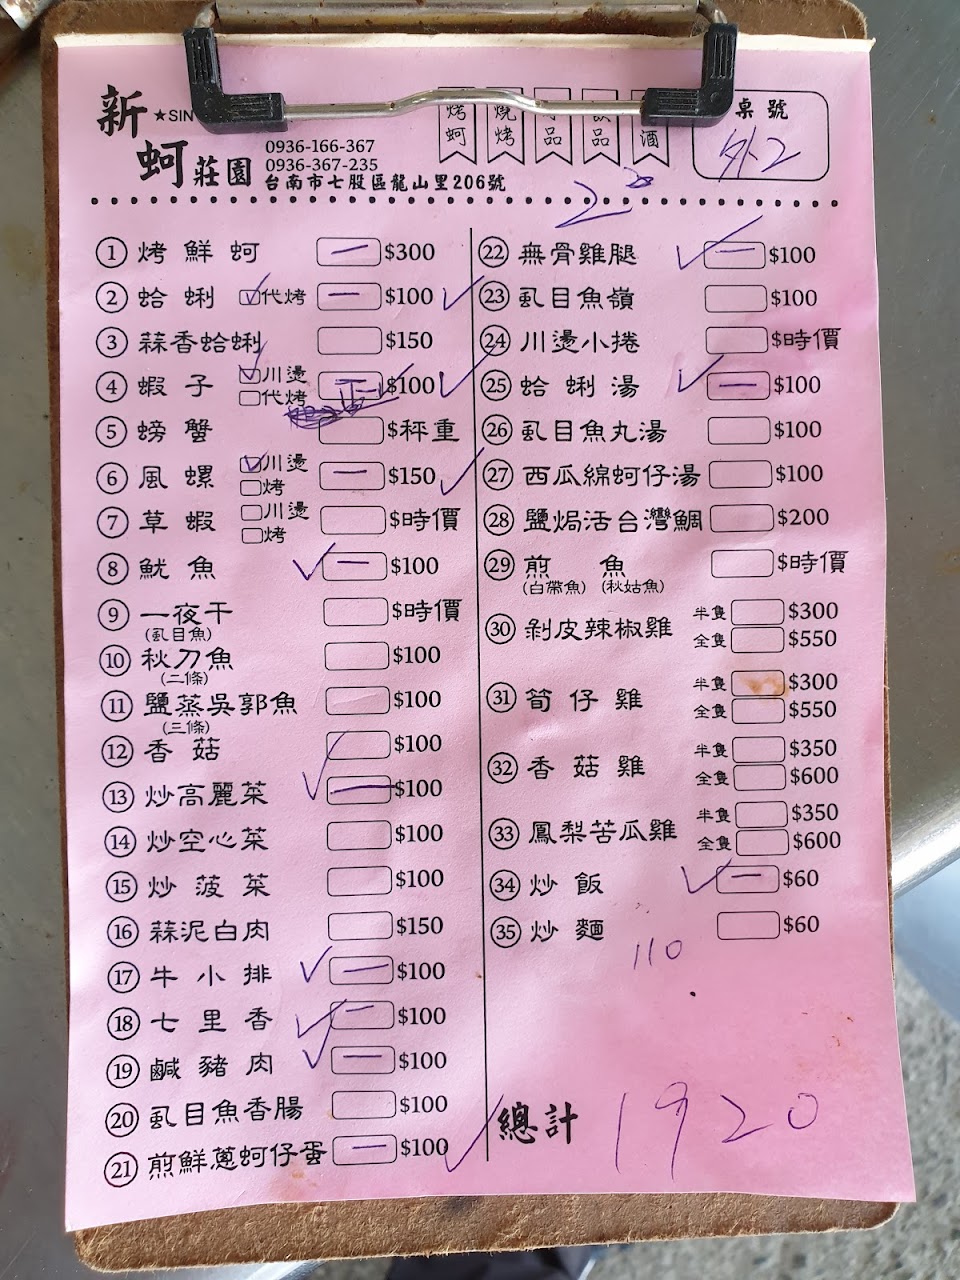 新
★SIN
蚵莊園
0936-166-367
0936-367-235
台南市七股區龍山里206號
烤蚵
燒烤
品
飲品
酒
桌號
外2
2
① 烤鮮蚵 一 $300
② 蛤蜊 ☑代烤 一 $100
③ 蒜香蛤蜊 $150
④ 蝦子 ☑川燙 □代烤 正 $100
⑤ 螃蟹 $秤重
⑥ 風螺 ☑川燙 □烤 一 $150
⑦ 草蝦 □川燙 □烤 $時價
⑧ 魷魚 一 $100
⑨ 一夜干 $時價
(虱目魚)
⑩ 秋刀魚 $100
(二條)
⑪ 鹽蒸吳郭魚 $100
(三條)
⑫ 香菇 $100
⑬ 炒高麗菜 一 $100
⑭ 炒空心菜 $100
⑮ 炒菠菜 $100
⑯ 蒜泥白肉 $150
⑰ 牛小排 一 $100
⑱ 七里香 一 $100
⑲ 鹹豬肉 一 $100
⑳ 虱目魚香腸 $100
㉑ 煎鮮蔥蚵仔蛋 一 $100
㉒ 無骨雞腿 一 $100
㉓ 虱目魚嶺 $100
㉔ 川燙小捲 $時價
㉕ 蛤蜊湯 一 $100
㉖ 虱目魚丸湯 $100
㉗ 西瓜綿蚵仔湯 $100
㉘ 鹽焗活台灣鯛 $200
㉙ 煎魚 $時價
(白帶魚) (秋姑魚)
㉚ 剝皮辣椒雞 半隻 $300
全隻 $550
㉛ 筍仔雞 半隻 $300
全隻 $550
㉜ 香菇雞 半隻 $350
全隻 $600
㉝ 鳳梨苦瓜雞 半隻 $350
全隻 $600
㉞ 炒飯 一 $60
㉟ 炒麵 $60
110
總計 1920